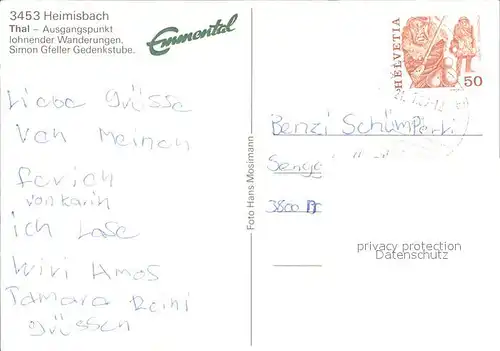 3453 Heimisbach
Thal – Ausgangspunkt
lohnender Wanderungen.
Simon Gfeller Gedenkstube.
Emmental
Liebe Grüsse
von Meinen
Ferich
von Karin
ich Lase
Wivi Amos
Tamara Reini
grüssen
Foto Hans Mosimann
HELVETIA
50
Benzi Schümperli
3800
privacy protection
Datenschutz